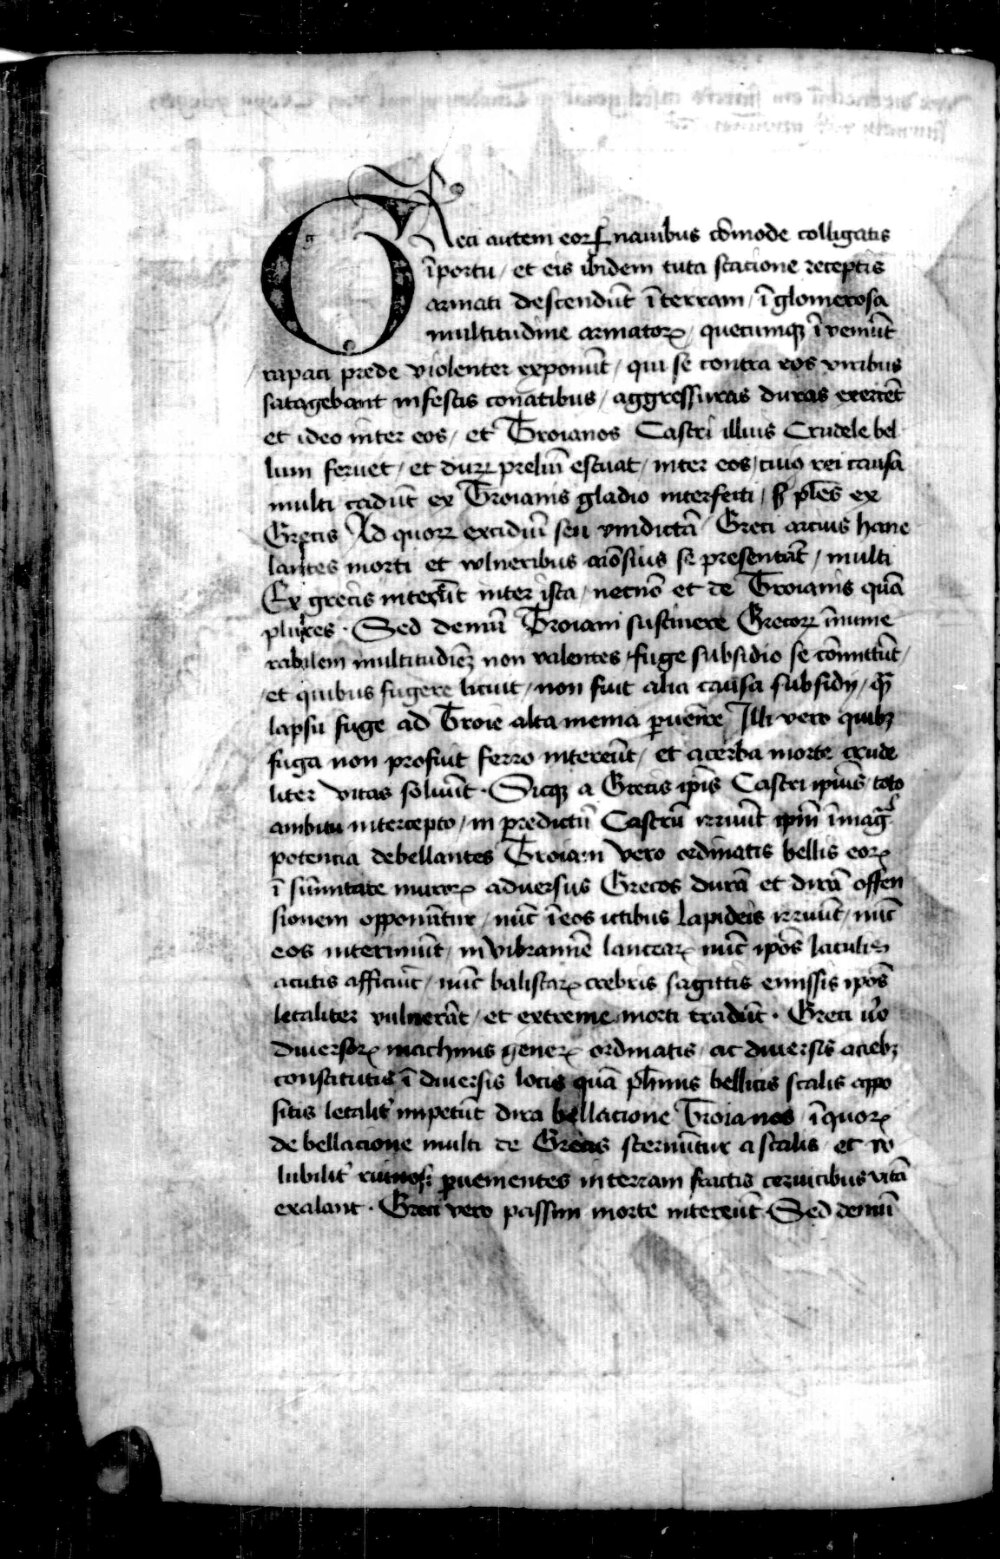 GReci autem eorꝝ nauibus cōmode colligatis
īportu / et eis ibidem tuta stacione receptis
armati descendūt īterram / ī glomerosa
multitudine armatorꝝ / quecumqꝫ ī veniūt
rapaci prede violenter exponūt / qui se contra eos viribus
satagebant infestis conatibus / aggressuras duras exercēt
et ideo inter eos / et Troianos Castri illius Crudele bel
lum feruet / et durꝝ preliū estuat / inter eos / cuio rei causa
multi cadūt ex Troianis gladio interfecti / sꝫ ples̄ ex
Grecis Ad quorꝝ excidiū seu vindictā Greci arcius hane
lantes morti et wlneribus aīosius se presentāt / multi
Ex grecis intereūt inter ista / necnō et de Troianis quā
plures · Sed demū Troiani sustinere Grecorꝝ īnume
rabilem multitudiēꝫ non valentes fuge subsidio se cōmittūt /
et quibus fugere licuit / non fuit alia causa subsidy / qꝫ
lapsu fuge ad Troie alta menia ꝑuenire Illi vero quibꝫ
fuga non profuit ferro intereūt / et acerba morte crude
liter vitas soluūt · Sicqꝫ a Grecis ip̄is Castri ipius̄ toto
ambitu intercepto / in predictū Castrū irruūt ip̄m īmaḡ
potencia debellantes Troiani vero ordinatis bellis eorꝝ
ī sūmitate murorꝝ aduersus Grecos durā et dirā offen
sionem opponūtur / nūc īeos ictibus lapideis irruūt / nūc
eos interimūt / invibramīe lancearꝝ nūc ip̄os Iaculis
acutis afficiūt / nūc balistarꝝ crebris sagittis emissis ip̄os
letaliter vulnerāt / et extreme morti tradūt · Greci ŭo
Diuersorꝝ machinis generꝝ ordinatis / ac diuersis aciebꝫ
constitutis ī diuersis locis quā pl̄imis bellicis scalis appo
sitis letalit᾽ impetūt dira bellacione Troianos īquorꝝ
de bellacione multi de Grecis sternūtur a scalis / et vo
lubilit᾽ ꝑuenientes interram fractis ceruicibus vitā
exalant · Greci vero passim morte intereūt · Sed demū